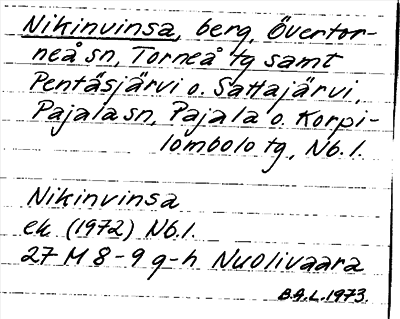 Nikinvinsa, berg, Övertor-
neå sn, Torneå tg samt
Pentäsjärvi o. Sattajärvi,
Pajala sn, Pajala o. Korpi-
lombolo tg, Nb.l.
Nikinvinsa
ek. (1972) Nb.l.
27 M 8-9 g-h Nuolivaara
B.A.L. 1973.